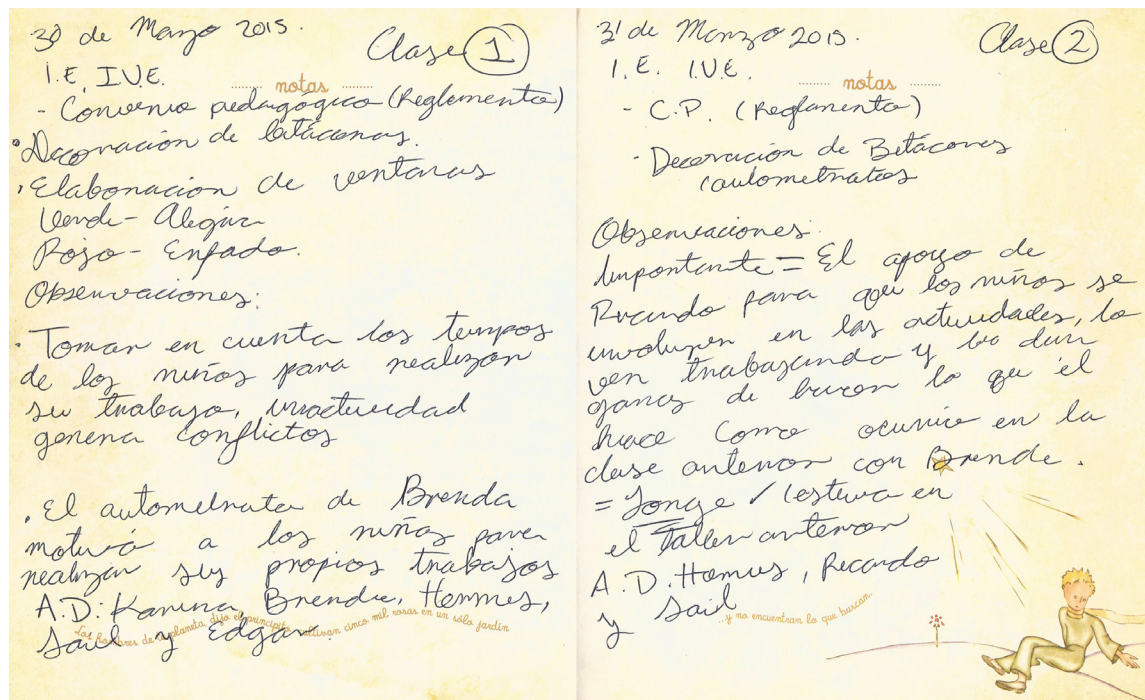 30 de Marzo 2015.
Clase 1
I.E. I.V.E.
notas
- Convenio pedagógico (Reglamento)
· Decoración de bitácoras.
· Elaboracion de ventanas
Verde - Alegría
Rojo - Enfado.
Observaciones:
· Tomar en cuenta los tiempos
de los niños para realizar
su trabajo, inactividad
genera conflictos
· El autorretrato de Brenda
motivó a los niños para
realizar sus propios trabajos
A.D: Karina, Brenda, Hermes,
Said y Edgar.
-Los hombres de tu planeta, dijo el principito, cultivan cinco mil rosas en un sólo jardín
31 de Marzo 2015.
Clase 2
I.E. I.V.E.
notas
- C.P. (Reglamento)
· Decoración de Bitácoras
(autorretratos
Observaciones:
Importante = El apoyo de
Ricardo para que los niños se
involucren en las actividades, lo
ven trabajando y les dan
ganas de hacer lo que él
hace como ocurrió en la
clase anterior con Brenda.
= Jorge ✓ (estuvo en
el Taller anterior
A.D. Hermes, Ricardo
y Said
...y no encuentran lo que buscan.